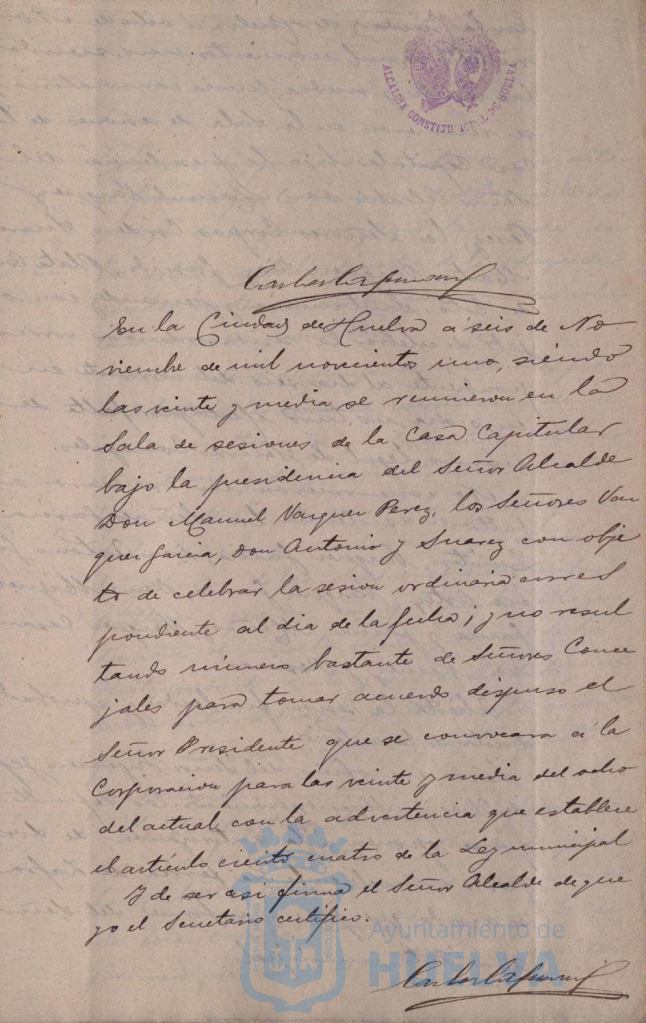 ALCALDIA CONSTITUCIONAL DE HUELVA
En la Ciudad de Huelva a seis de No
viembre de mil novecientos uno, siendo
las veinte y media se reunieron en la
Sala de sesiones de la Casa Capitular
bajo la presidencia del Señor Alcalde
Don Manuel Vazquez Perez, los Señores Vaz
quez Garcia, Don Antonio y Suarez con obje
to de celebrar la sesion ordinaria corres
pondiente al dia de la fecha; y no resul
tando número bastante de Señores Conce
jales para tomar acuerdo dispuso el
Señor Presidente que se convocara á la
Corporacion para las veinte y media del ocho
del actual con la advertencia que establece
el artículo ciento cuatro de la Ley municipal
Y de ser asi firma el Señor Alcalde de que
yo el Secretario certifico.
Ayuntamiento de
HUELVA